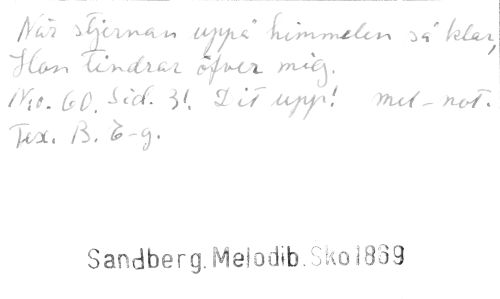 När stjernan uppå himmelen så klar,
Hon tindrar öfver mig.
No. 60. Sid. 31. Dit upp! mel-not.
Tex. B. E-g.
Sandberg. Melodib. Sko 1869